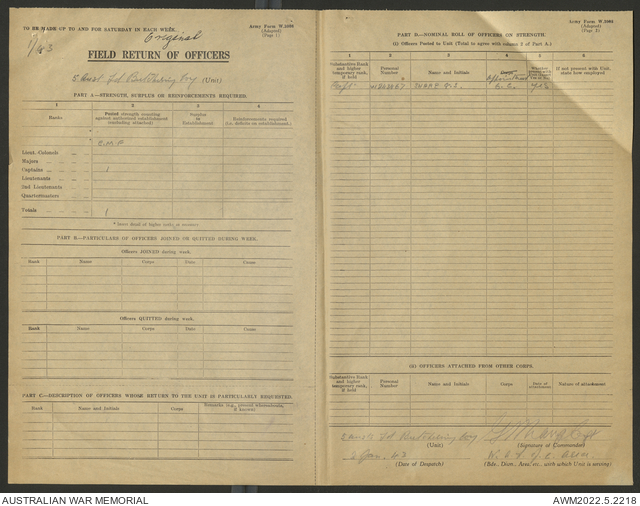 TO BE MADE UP TO AND FOR SATURDAY IN EACH WEEK.
Army Form W.3084
(Adapted)
(Page 1)
Original
1/43
FIELD RETURN OF OFFICERS
5 Aust Fd Butchering Coy (Unit)
PART A—STRENGTH, SURPLUS OR REINFORCEMENTS REQUIRED.
1 2 3 4
Ranks
Posted strength counting against authorised establishment (excluding attached)
Number in Establishment
Reinforcements required (i.e. deficits on establishment).
C.M.F.
Lieut.-Colonels
Majors
Captains 1
Lieutenants
2nd Lieutenants
Quartermasters
Totals 1
PART B—PARTICULARS OF OFFICERS JOINED OR QUITTED DURING WEEK.
Officers JOINED during week.
Rank Name Corps Date Cause
Officers QUITTED during week.
Rank Name Corps Date Cause
PART C—DESCRIPTION OF OFFICERS WHOSE RETURN TO THE UNIT IS PARTICULARLY REQUESTED.
Rank Name and Initials Corps Remarks (e.g., present whereabouts, if known)
Army Form W.3084
(Adapted)
(Page 2)
PART D—NOMINAL ROLL OF OFFICERS ON STRENGTH.
(i) Officers Posted to Unit (Total to agree with column 2 of Part A.)
1 2 3 4 5 6
Substantive Rank and higher temporary rank, if held
Personal Number
Name and Initials
Corps
If not present with Unit, state how employed
Capt
(ii) OFFICERS ATTACHED FROM OTHER CORPS.
Substantive Rank and higher temporary rank, if held
Personal Number
Name and Initials
Corps
Date of attachment
Nature of attachment
5 Aust Fd Butchering Coy
(Unit)
(Signature of Commander)
2 Jan. 43
(Date of Despatch)
(Bde., Divn., Area, etc., with which Unit is serving)
AUSTRALIAN WAR MEMORIAL
AWM2022.5.2218